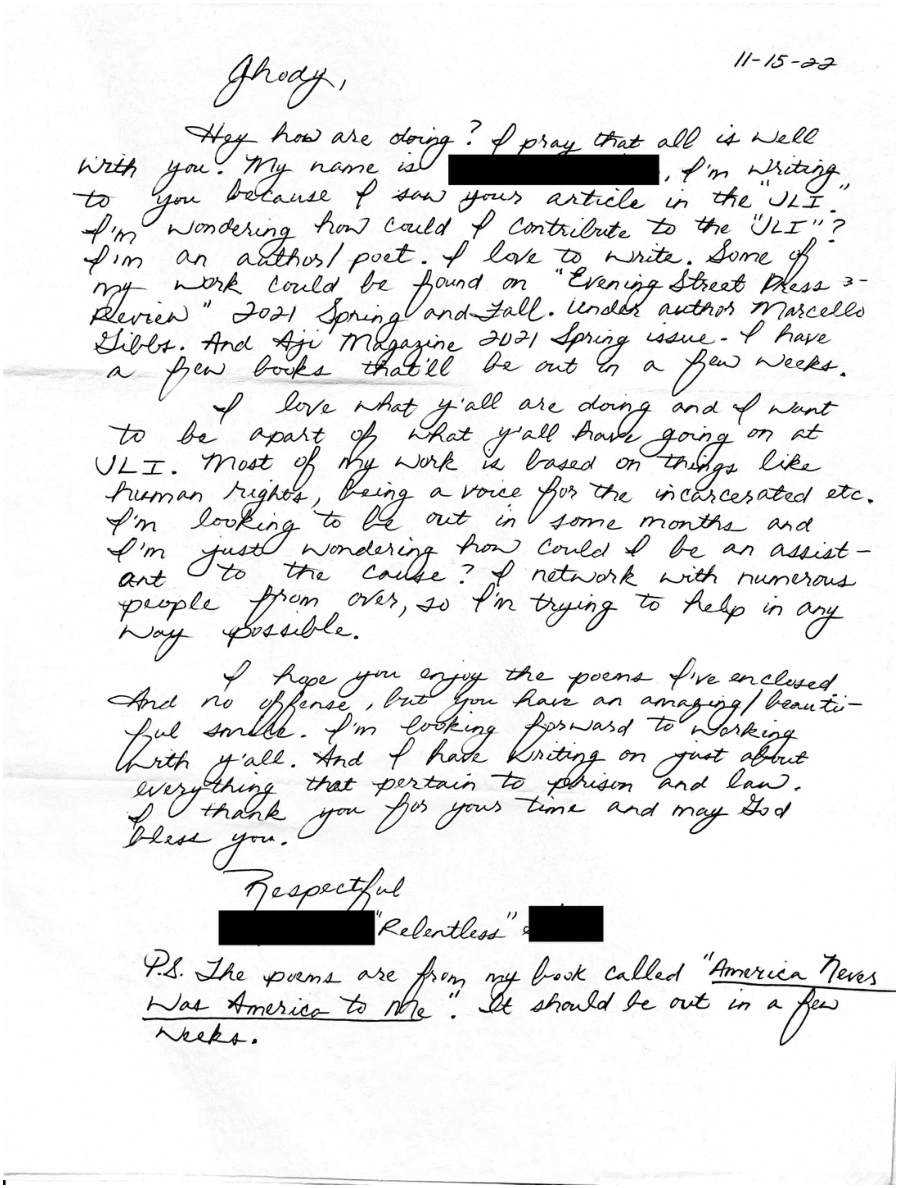 11-15-22
Jhody,
Hey how are doing? I pray that all is well
with you. My name is , I'm writing
to you because I saw your article in the "JLI."
I'm wondering how could I contribute to the "JLI"?
I'm an author/poet. I love to write. Some of
my work could be found on "Evening Street Press &
Review" 2021 Spring and Fall. Under author Marcello
Gibbs. And Aji Magazine 2021 Spring issue. I have
a few books that'll be out in a few weeks.
I love what y'all are doing and I want
to be apart of what y'all have going on at
JLI. Most of my work is based on things like
human rights, being a voice for the incarcerated etc.
I'm looking to be out in some months and
I'm just wondering how could I be an assist-
ant to the cause? I network with numerous
people from over, so I'm trying to help in any
way possible.
I hope you enjoy the poems I've enclosed.
And no offense, but you have an amazing/beauti-
ful smile. I'm looking forward to working
with y'all. And I have writing on just about
everything that pertain to prison and law.
I thank you for your time and may God
bless you.
Respectful
"Relentless"
P.S. The poems are from my book called "America Never
Was America to Me". It should be out in a few
weeks.